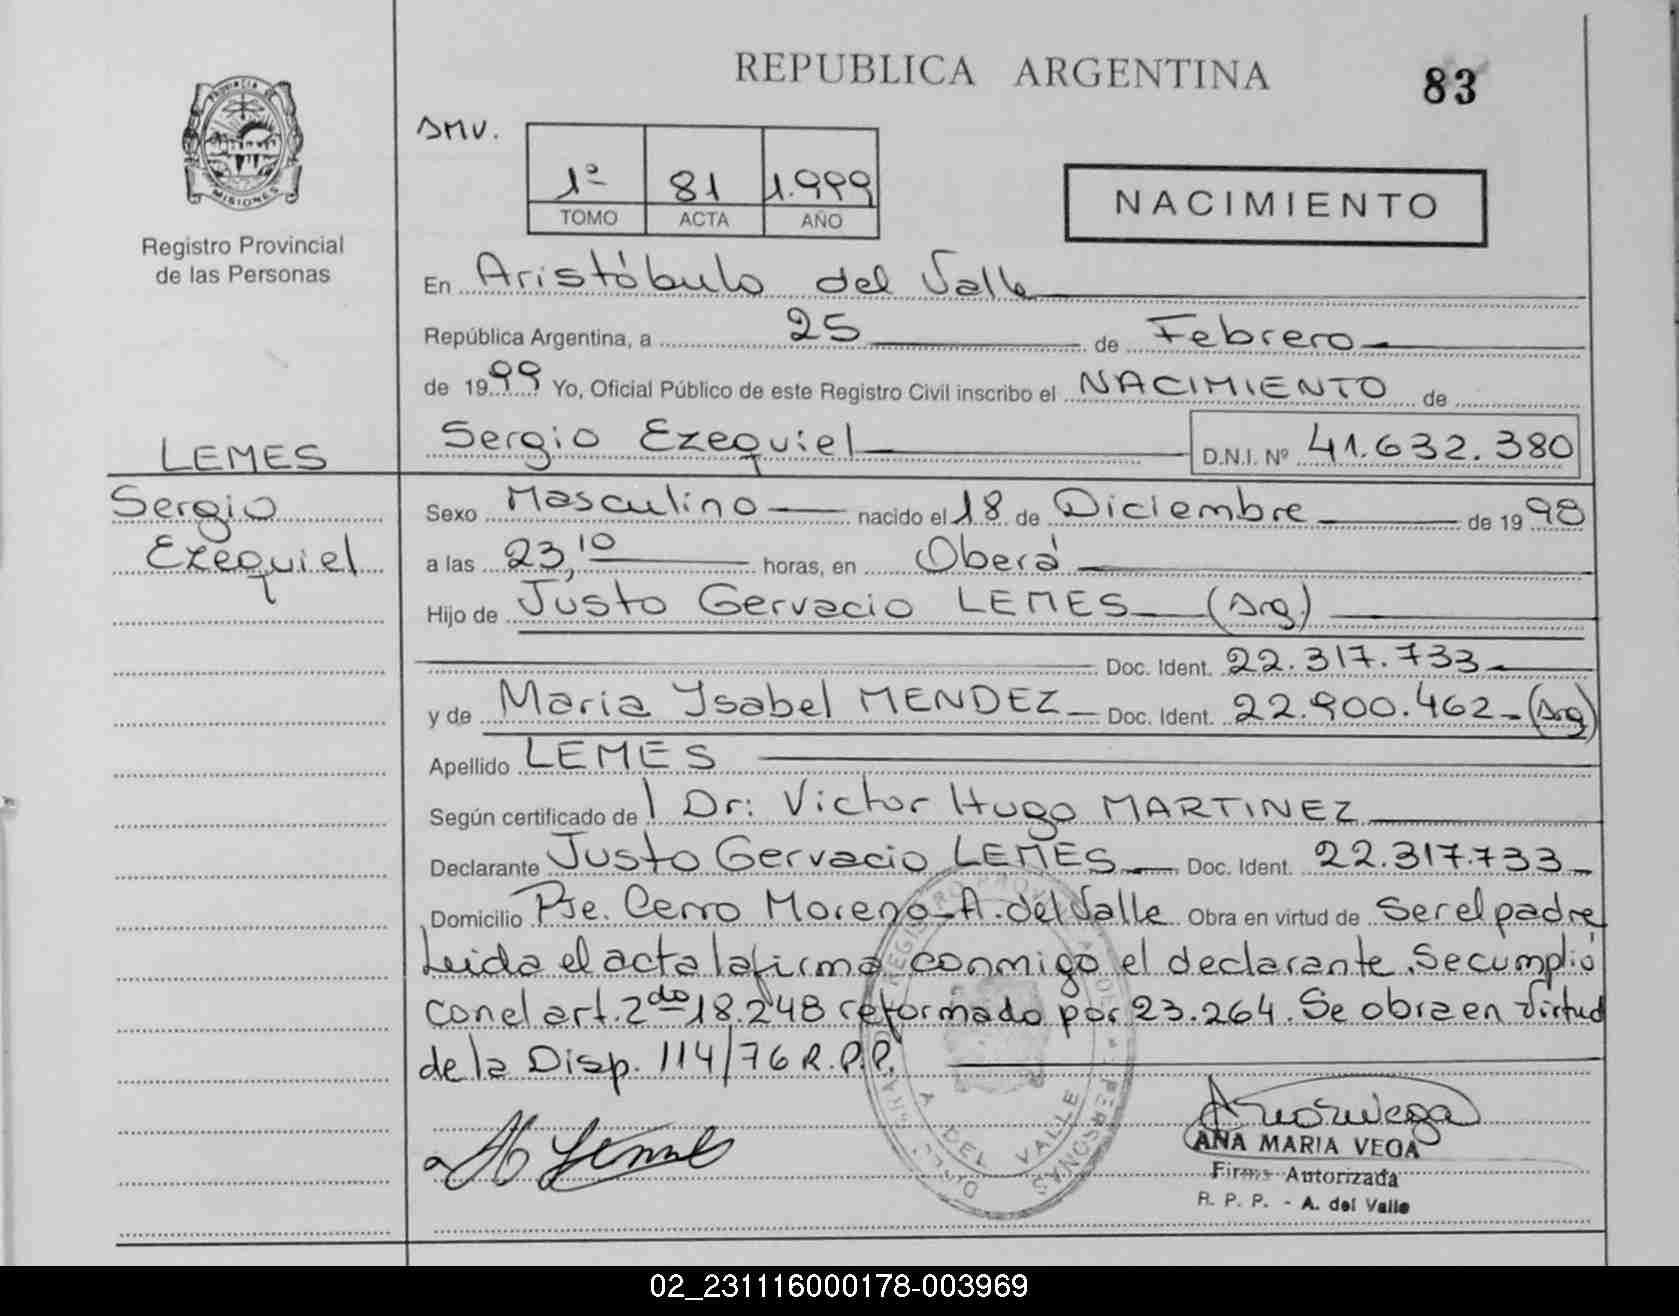 REPUBLICA ARGENTINA
83
PROVINCIA DE
MISIONES
Registro Provincial
de las Personas
SMV.
1º 81 1.999
TOMO ACTA AÑO
NACIMIENTO
En Aristóbulo del Valle
República Argentina, a 25 de Febrero
de 1999 Yo, Oficial Público de este Registro Civil inscribo el NACIMIENTO de
Sergio Ezequiel D.N.I. Nº 41.632.380
LEMES
Sergio
Ezequiel
Sexo Masculino nacido el 18 de Diciembre de 1998
a las 23,10 horas, en Oberá
Hijo de Justo Gervacio LEMES (Arg)
Doc. Ident. 22.317.733
y de Maria Ysabel MENDEZ Doc. Ident. 22.900.462 (Arg)
Apellido LEMES
Según certificado de l Dr: Victor Hugo MARTINEZ
Declarante Justo Gervacio LEMES Doc. Ident. 22.317.733
Domicilio Pje. Cerro Moreno-A. del Valle Obra en virtud de ser el padre
Leida el acta la firma conmigo el declarante. Se cumplió
con el art. 2do 18.248 reformado por 23.264. Se obra en virtud
de la Disp. 114/76 R.P.P.
A. DEL VALLE
ANA MARIA VEGA
Firma Autorizada
R. P. P. - A. del Valle
02_231116000178-003969